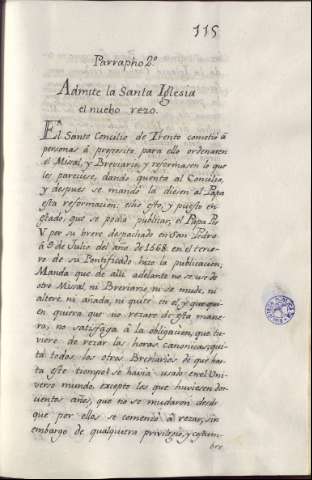 115
Parrapho 2º
Admite la Santa Iglesia
el nuebo rezo.
El Santo Concilio de Trento cometió á
personas á proposito para ello ordenasen
el Misal, y Breviario, y reformasen lo que
les pareciese, dando quenta al Concilio,
y despues se mandó la diesen al Papa
esta reformacion, echo esto, y puesto en
estado, que se podia publicar, el Papa Pio
V por su breve despachado en San Pedro
á 9 de Julio del año de 1568 en el terce-
ro de su Pontificado hizo la publicacion,
Manda que de alli adelante no se use de
otro Misal, ni Breviario, ni se mude, ni
altere, ni añada, ni quite en el, y que qui-
en quiera que no rezare de esta mane-
ra, no satisfaga á la obligacion, que tu-
viere de rezar las horas canonicas, qui-
ta todos los otros Breviarios de que has-
ta este tiempo se havia usado en el Uni-
verso mundo, excepto los que huviesen dos-
cientos años, que no se mudaron desde
que por ellos se comenzó á rezar, sin
embargo de qualquiera privilegio, y costum-
bre